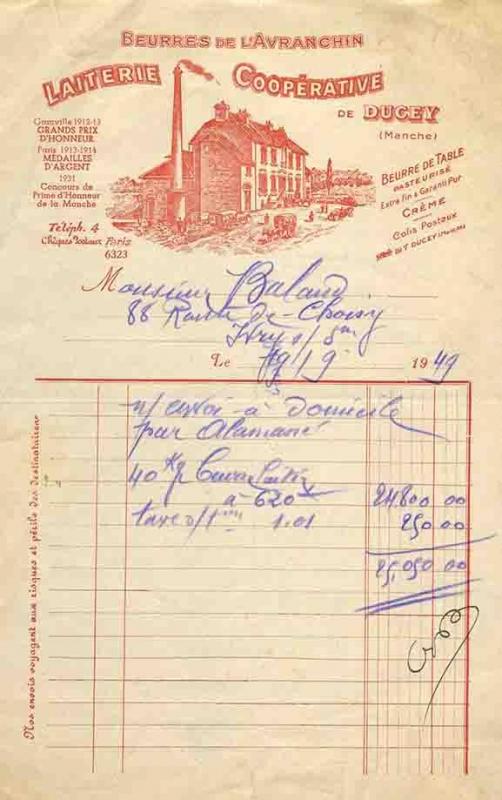 BEURRES DE L'AVRANCHIN
LAITERIE COOPÉRATIVE
DE DUCEY
(Manche)
Granville 1912-13
GRANDS PRIX
D'HONNEUR
Paris 1913-1914
MÉDAILLES
D'ARGENT
1931
Concours de
Prime d'Honneur
de la Manche
Téléph. 4
Chèques Postaux Paris
6323
BEURRE DE TABLE
PASTEURISÉ
Extra fin & Garanti Pur
CRÈME
Colis Postaux
DUCEY
Monsieur Baland
88 Route de Choisy
Ivry s/ Seine
Le 19/9 1949
n/ envoi à domicile
par
40 Kg
à 620 24.800 00
taxe 1.01 250 00
25,050 00
Nos envois voyagent aux risques et périls des destinataires